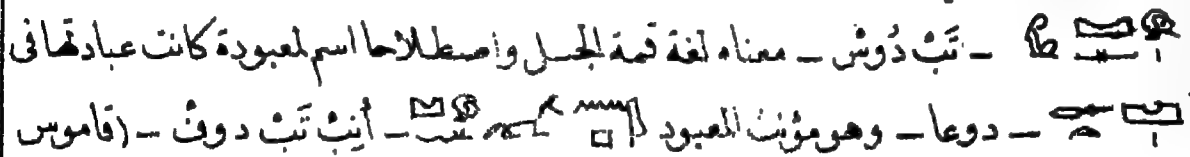 – تَبْ دُوسْ – معناه لغة قمة الجبل واصطلاحا اسم لمعبودة كانت عبادتها فى
– دوعا – وهو مؤنث المعبود – أَنِبْ تَبْ دوفْ – (قاموس